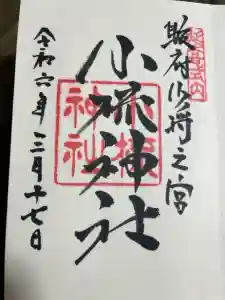 延喜式内
駿府少将之宮
小梳神社
小梳神社
令和六年十二月十七日